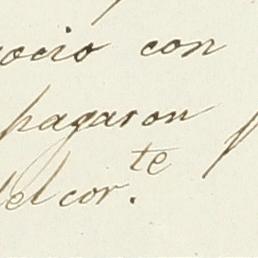 ocio con
pagaron
del cor.te